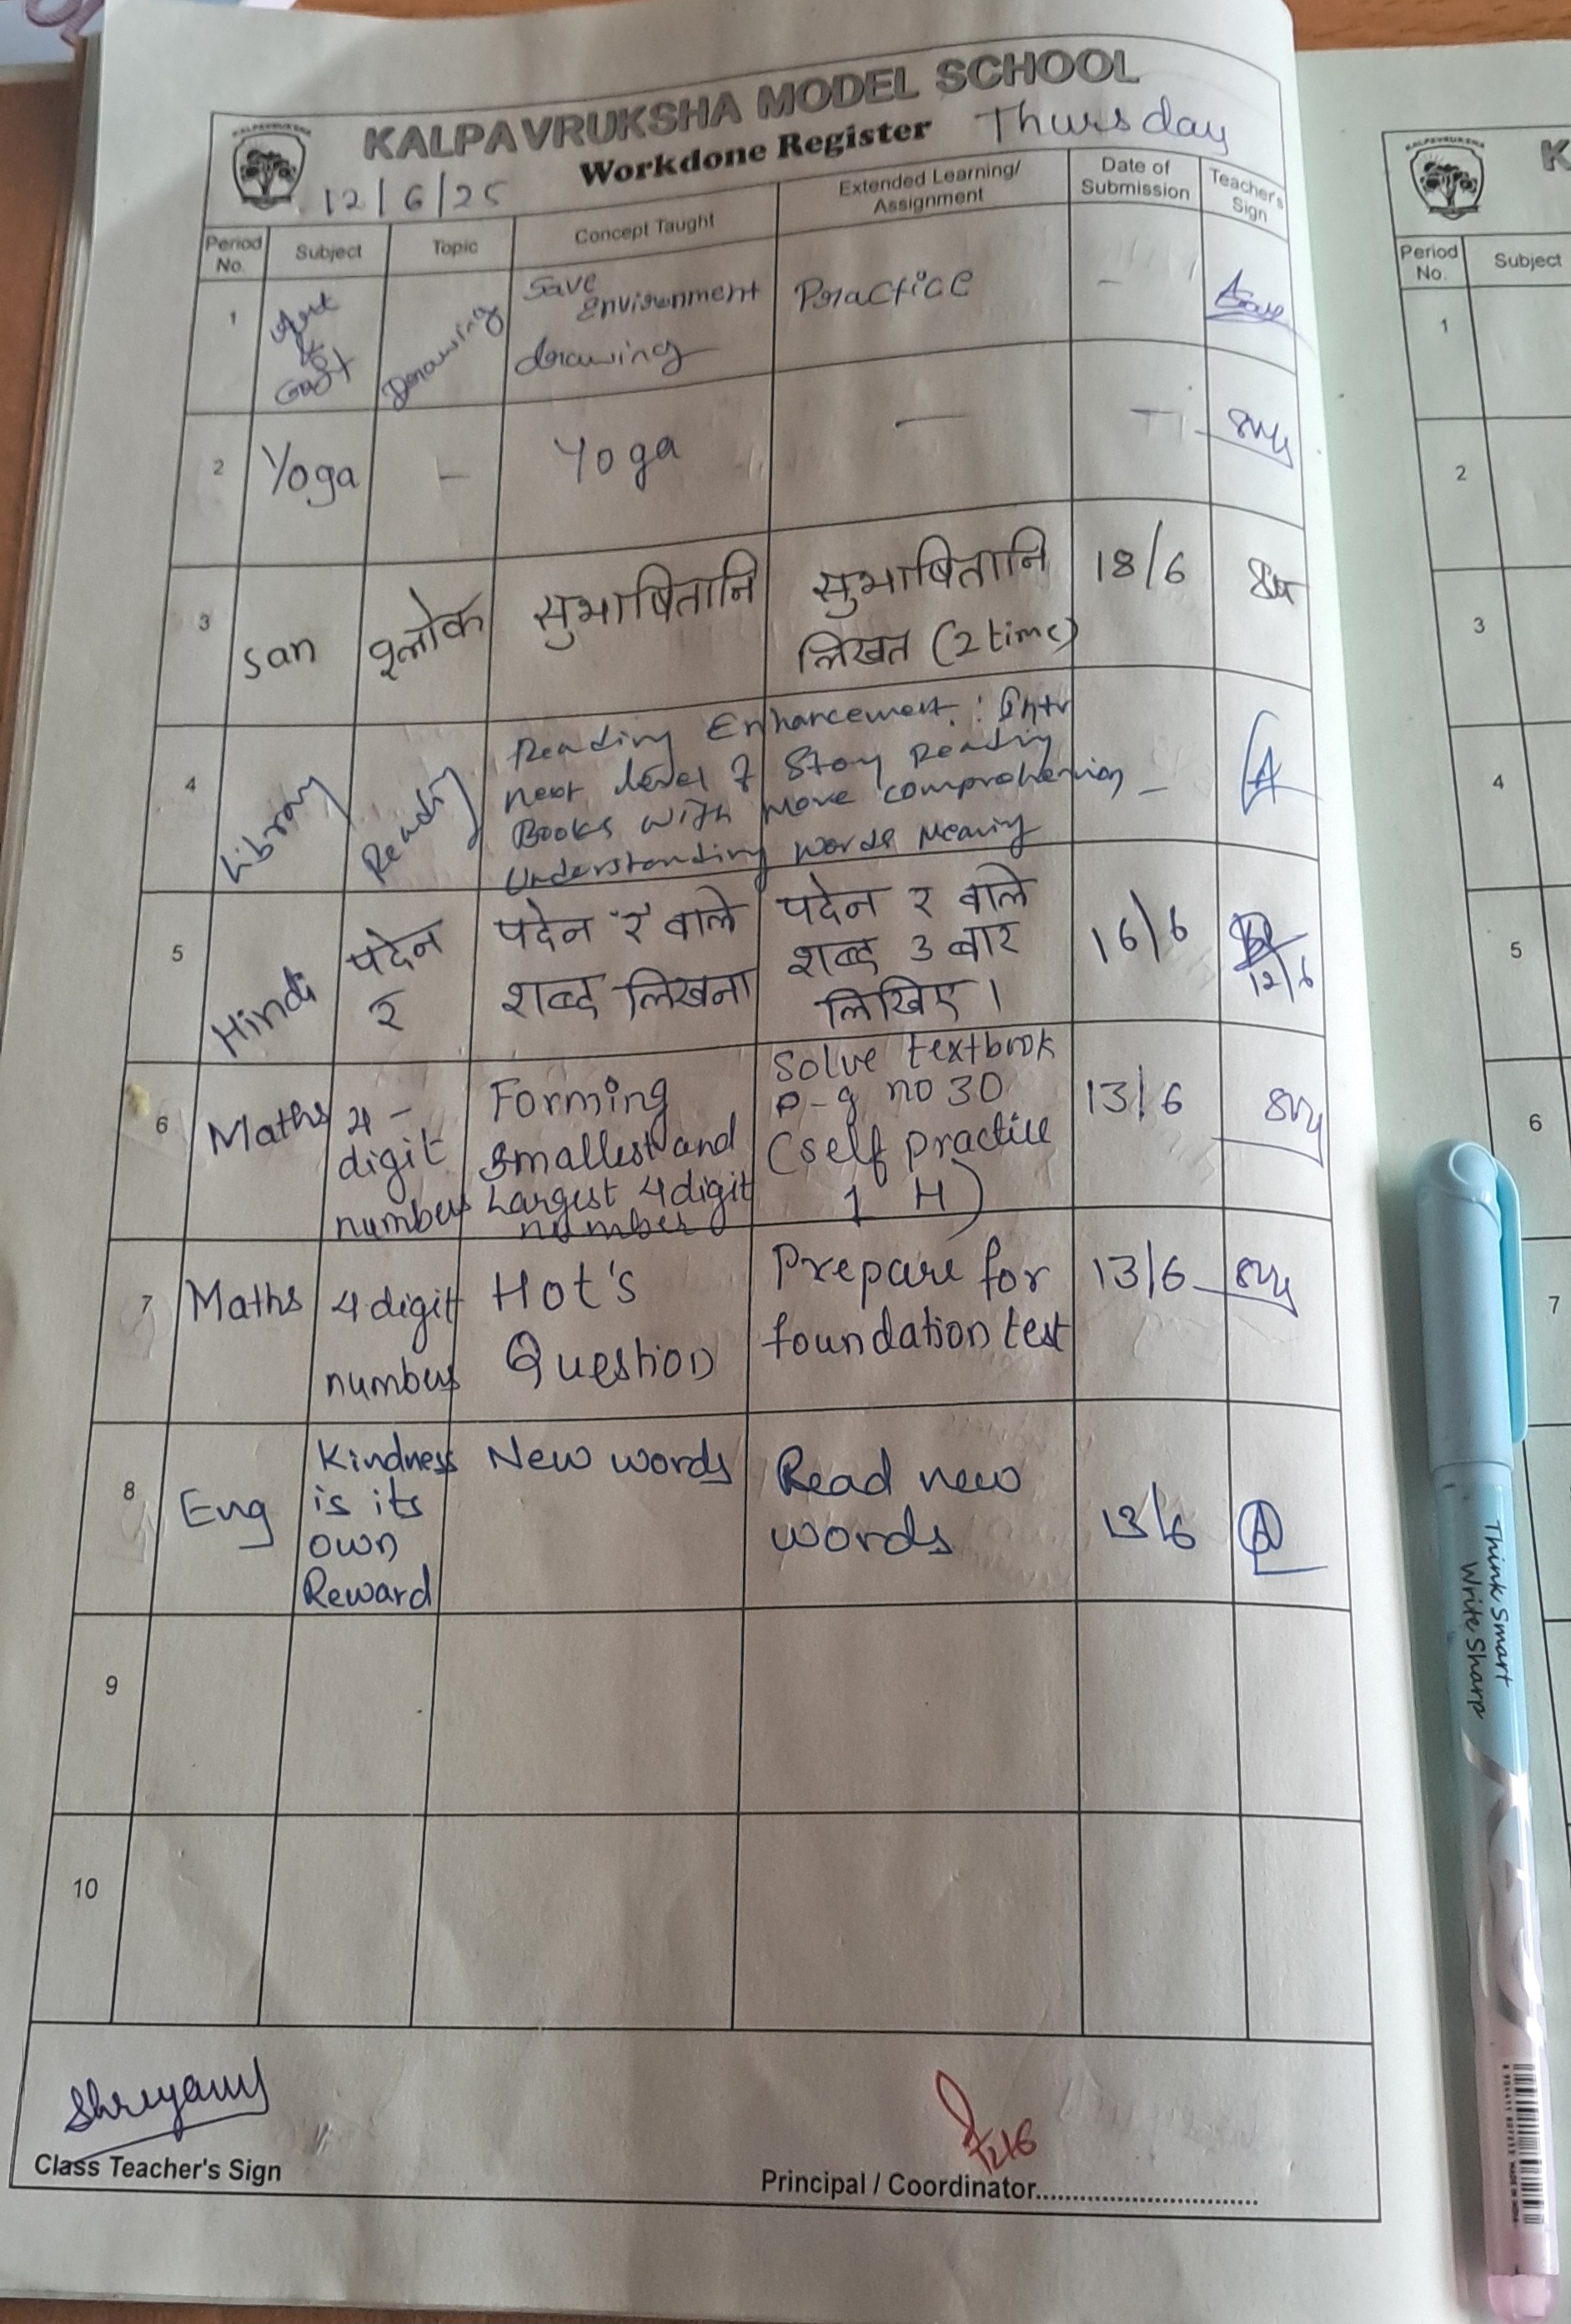 KALPAVRUKSHA MODEL SCHOOL
Workdone Register Thursday
KALPAVRUKSHA
12/6/25
Period No. Subject Topic Concept Taught Extended Learning/ Assignment Date of Submission Teacher's Sign
1 & Craft Drawing Save environment drawing Practice -
2 Yoga - Yoga — -
3 San श्लोक सुभाषितानि सुभाषितानि लिखत (2 time) 18/6
4 Library Reading Reading Enhancement :
next level of Story Reading
Books with More comprehension -
Understanding words Meaning
5 Hindi पदेन र पदेन 'र' वाले शब्द लिखना पदेन र वाले शब्द 3 बार लिखिए । 16/6 12/6
6 Maths 4-digit numbers Forming smallest and Largest 4 digit number Solve textbook p-g no 30 (self practice 1 H) 13/6
7 Maths 4 digit numbers Hot's Question Prepare for foundation test 13/6
8 Eng Kindness is its own Reward New words Read new words 13/6
9
10
Class Teacher's Sign
Principal / Coordinator
KALPAVRUKSHA
K
Period No. Subject
1
2
3
4
5
6
7
Think Smart
Write Sharp